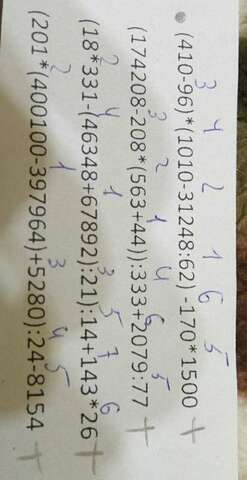 3 4 2 1 6 5
(410-96)*(1010-31248:62) -170*1500 +
3 2 1 4 6 5
(174208-208*(563+44)):333+2079:77 +
2 4 1 3 5 7 6
(18*331-(46348+67892):21):14+143*26 +
2 1 3 4 5
(201*(400100-397964)+5280):24-8154 +